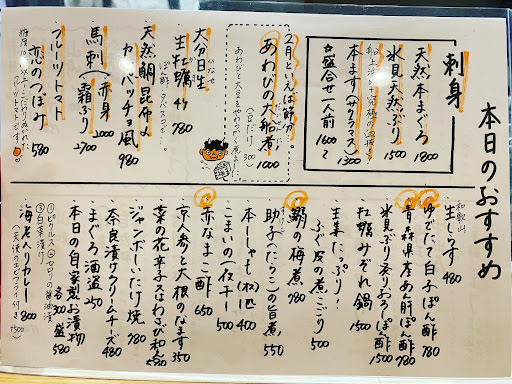 本日のおすすめ
刺身
天然本まぐろ 1800
氷見天然ぶり 1500
本ます(サクラマス) 1300
☆盛合せ一人前 1600~
2月といえば節分
あわびの大船煮 1000
あわびと大豆をやわらかく煮ました
(豆だけ) 300
大分日生
生牡蠣 1ケ 780
天然鯛昆布〆
カルパッチョ風 980
馬刺(赤身 2000
霜ふり 2700
フルーツトマト
恋のつぼみ 580
和歌山
生しらす 480
ゆでたて白子ぽん酢 780
青森県産あん肝ぽん酢 780
氷見ぶり炙りおろしぽん酢 1500
牡蠣みぞれ鍋 1500
生姜たっぷり!
ふぐ皮の煮こごり 500
鯛の梅煮 780
助子(たらこ)の旨煮 550
本ししゃも(オス)1匹 400
こまいの一夜干し 500
赤なまこ酢 650
京人参と大根のなます 350
菜の花辛子又はわさび和え 580
ジャンボしいたけ焼 780
奈良漬けクリームチーズ 480
まぐろ酒盗 250
本日の自家製お漬物
各300 盛580
①ピクルス ②セロリの醤油漬
③白菜漬け
海老カレー 800
(天使のエビフライ付き +500)